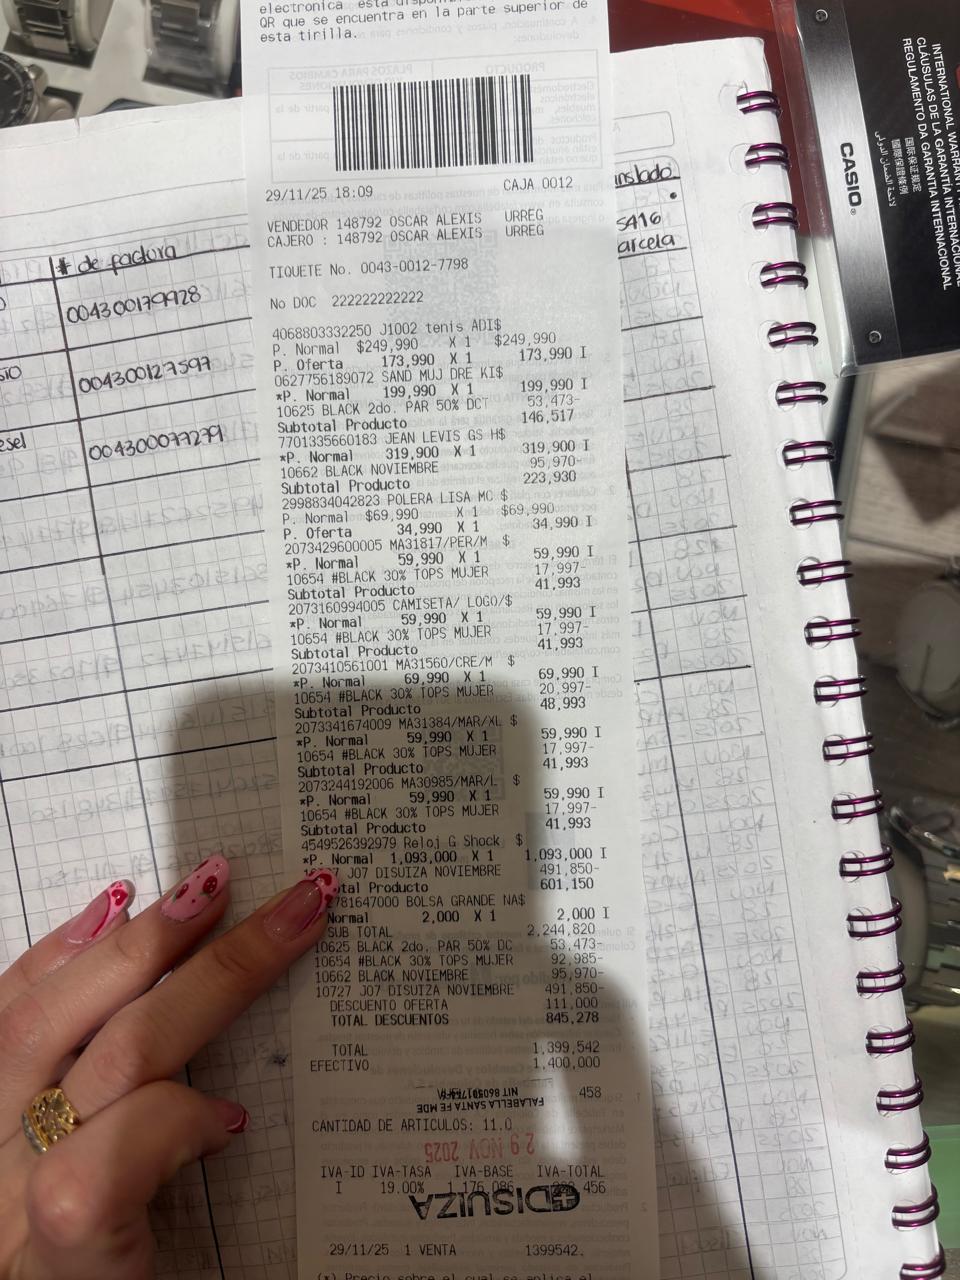 QR que se encuentra en la parte superior de
esta tirilla.
29/11/25 18:09 CAJA 0012
VENDEDOR 148792 OSCAR ALEXIS URREG
CAJERO : 148792 OSCAR ALEXIS URREG
TIQUETE No. 0043-0012-7798
No DOC 222222222222
4068803332250 J1002 tenis ADI$
P. Normal $249,990 X 1 $249,990
P. Oferta 173,990 X 1 173,990 I
0627756189072 SAND MUJ DRE KI$
*P. Normal 199,990 X 1 199,990 I
10625 BLACK 2do. PAR 50% DCT 53,473-
Subtotal Producto 146,517
7701335660183 JEAN LEVIS GS H$
*P. Normal 319,900 X 1 319,900 I
10662 BLACK NOVIEMBRE 95,970-
Subtotal Producto 223,930
2998834042823 POLERA LISA MC $
P. Normal $69,990 X 1 $69,990
P. Oferta 34,990 X 1 34,990 I
2073429600005 MA31817/PER/M $
*P. Normal 59,990 X 1 59,990 I
10654 #BLACK 30% TOPS MUJER 17,997-
Subtotal Producto 41,993
2073160994005 CAMISETA/ LOGO/$
*P. Normal 59,990 X 1 59,990 I
10654 #BLACK 30% TOPS MUJER 17,997-
Subtotal Producto 41,993
2073410561001 MA31560/CRE/M $
*P. Normal 69,990 X 1 69,990 I
10654 #BLACK 30% TOPS MUJER 20,997-
Subtotal Producto 48,993
2073341674009 MA31384/MAR/XL $
*P. Normal 59,990 X 1 59,990 I
10654 #BLACK 30% TOPS MUJER 17,997-
Subtotal Producto 41,993
2073244192006 MA30985/MAR/L $
*P. Normal 59,990 X 1 59,990 I
10654 #BLACK 30% TOPS MUJER 17,997-
Subtotal Producto 41,993
4549526392979 Reloj G Shock $
*P. Normal 1,093,000 X 1 1,093,000 I
J07 DISUIZA NOVIEMBRE 491,850-
Producto 601,150
781647000 BOLSA GRANDE NA$
Normal 2,000 X 1 2,000 I
SUB TOTAL 2,244,820
10625 BLACK 2do. PAR 50% DC 53,473-
10654 #BLACK 30% TOPS MUJER 92,985-
10662 BLACK NOVIEMBRE 95,970-
10727 J07 DISUIZA NOVIEMBRE 491,850-
DESCUENTO OFERTA 111,000
TOTAL DESCUENTOS 845,278
TOTAL 1,399,542
EFECTIVO 1,400,000
458
FALABELLA SANTA FE MDE
CANTIDAD DE ARTICULOS: 11.0
29 NOV 2025
IVA-ID IVA-TASA IVA-BASE IVA-TOTAL
I 19.00% 1,176,086 456
DISUIZA
29/11/25 1 VENTA 1399542.
# de factura
004300179928
004300127597
004300077279
CASIO
INTERNATIONAL WARRAN
CLÁUSULAS DE LA GARANTÍA INTERNACIONAL
REGULAMENTO DA GARANTIA INTERNACIONAL
国际保证规定
國際保證條例
لائحة الضمان الدولي